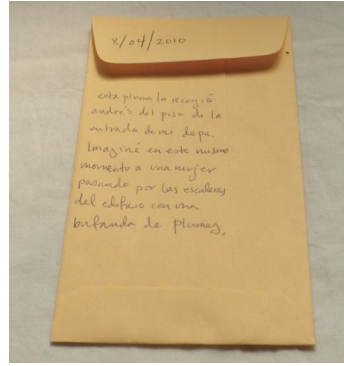 8/04/2010
esta pluma la recogió
andrés del piso de la
entrada de mi depa.
Imaginé en este mismo
momento a una mujer
pasando por las escaleras
del edificio con una
bufanda de plumas.